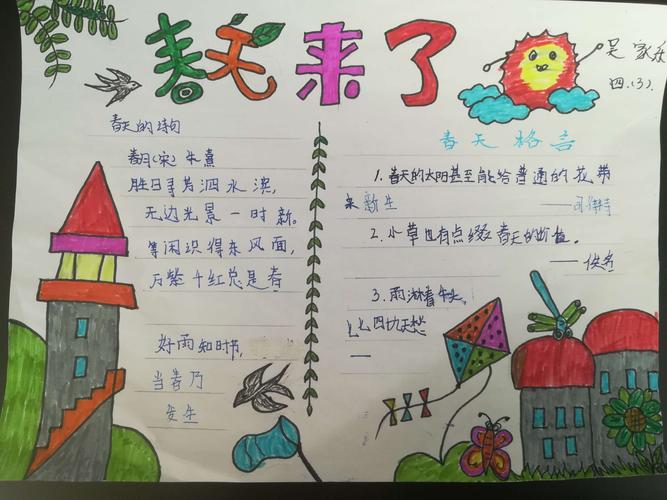 春天来了
吴家乐
四.(3).
春天的诗句
春月(宋)朱熹
胜日寻芳泗水滨,
无边光景一时新。
等闲识得东风面,
万紫千红总是春
好雨知时节,
当春乃
发生
春天格言
1.春天的太阳甚至能给普通的花带
来新生
——司各特
2.小草也有点缀春天的价值。
——佚名
3.雨淋春牛头,
七七四九天愁
—